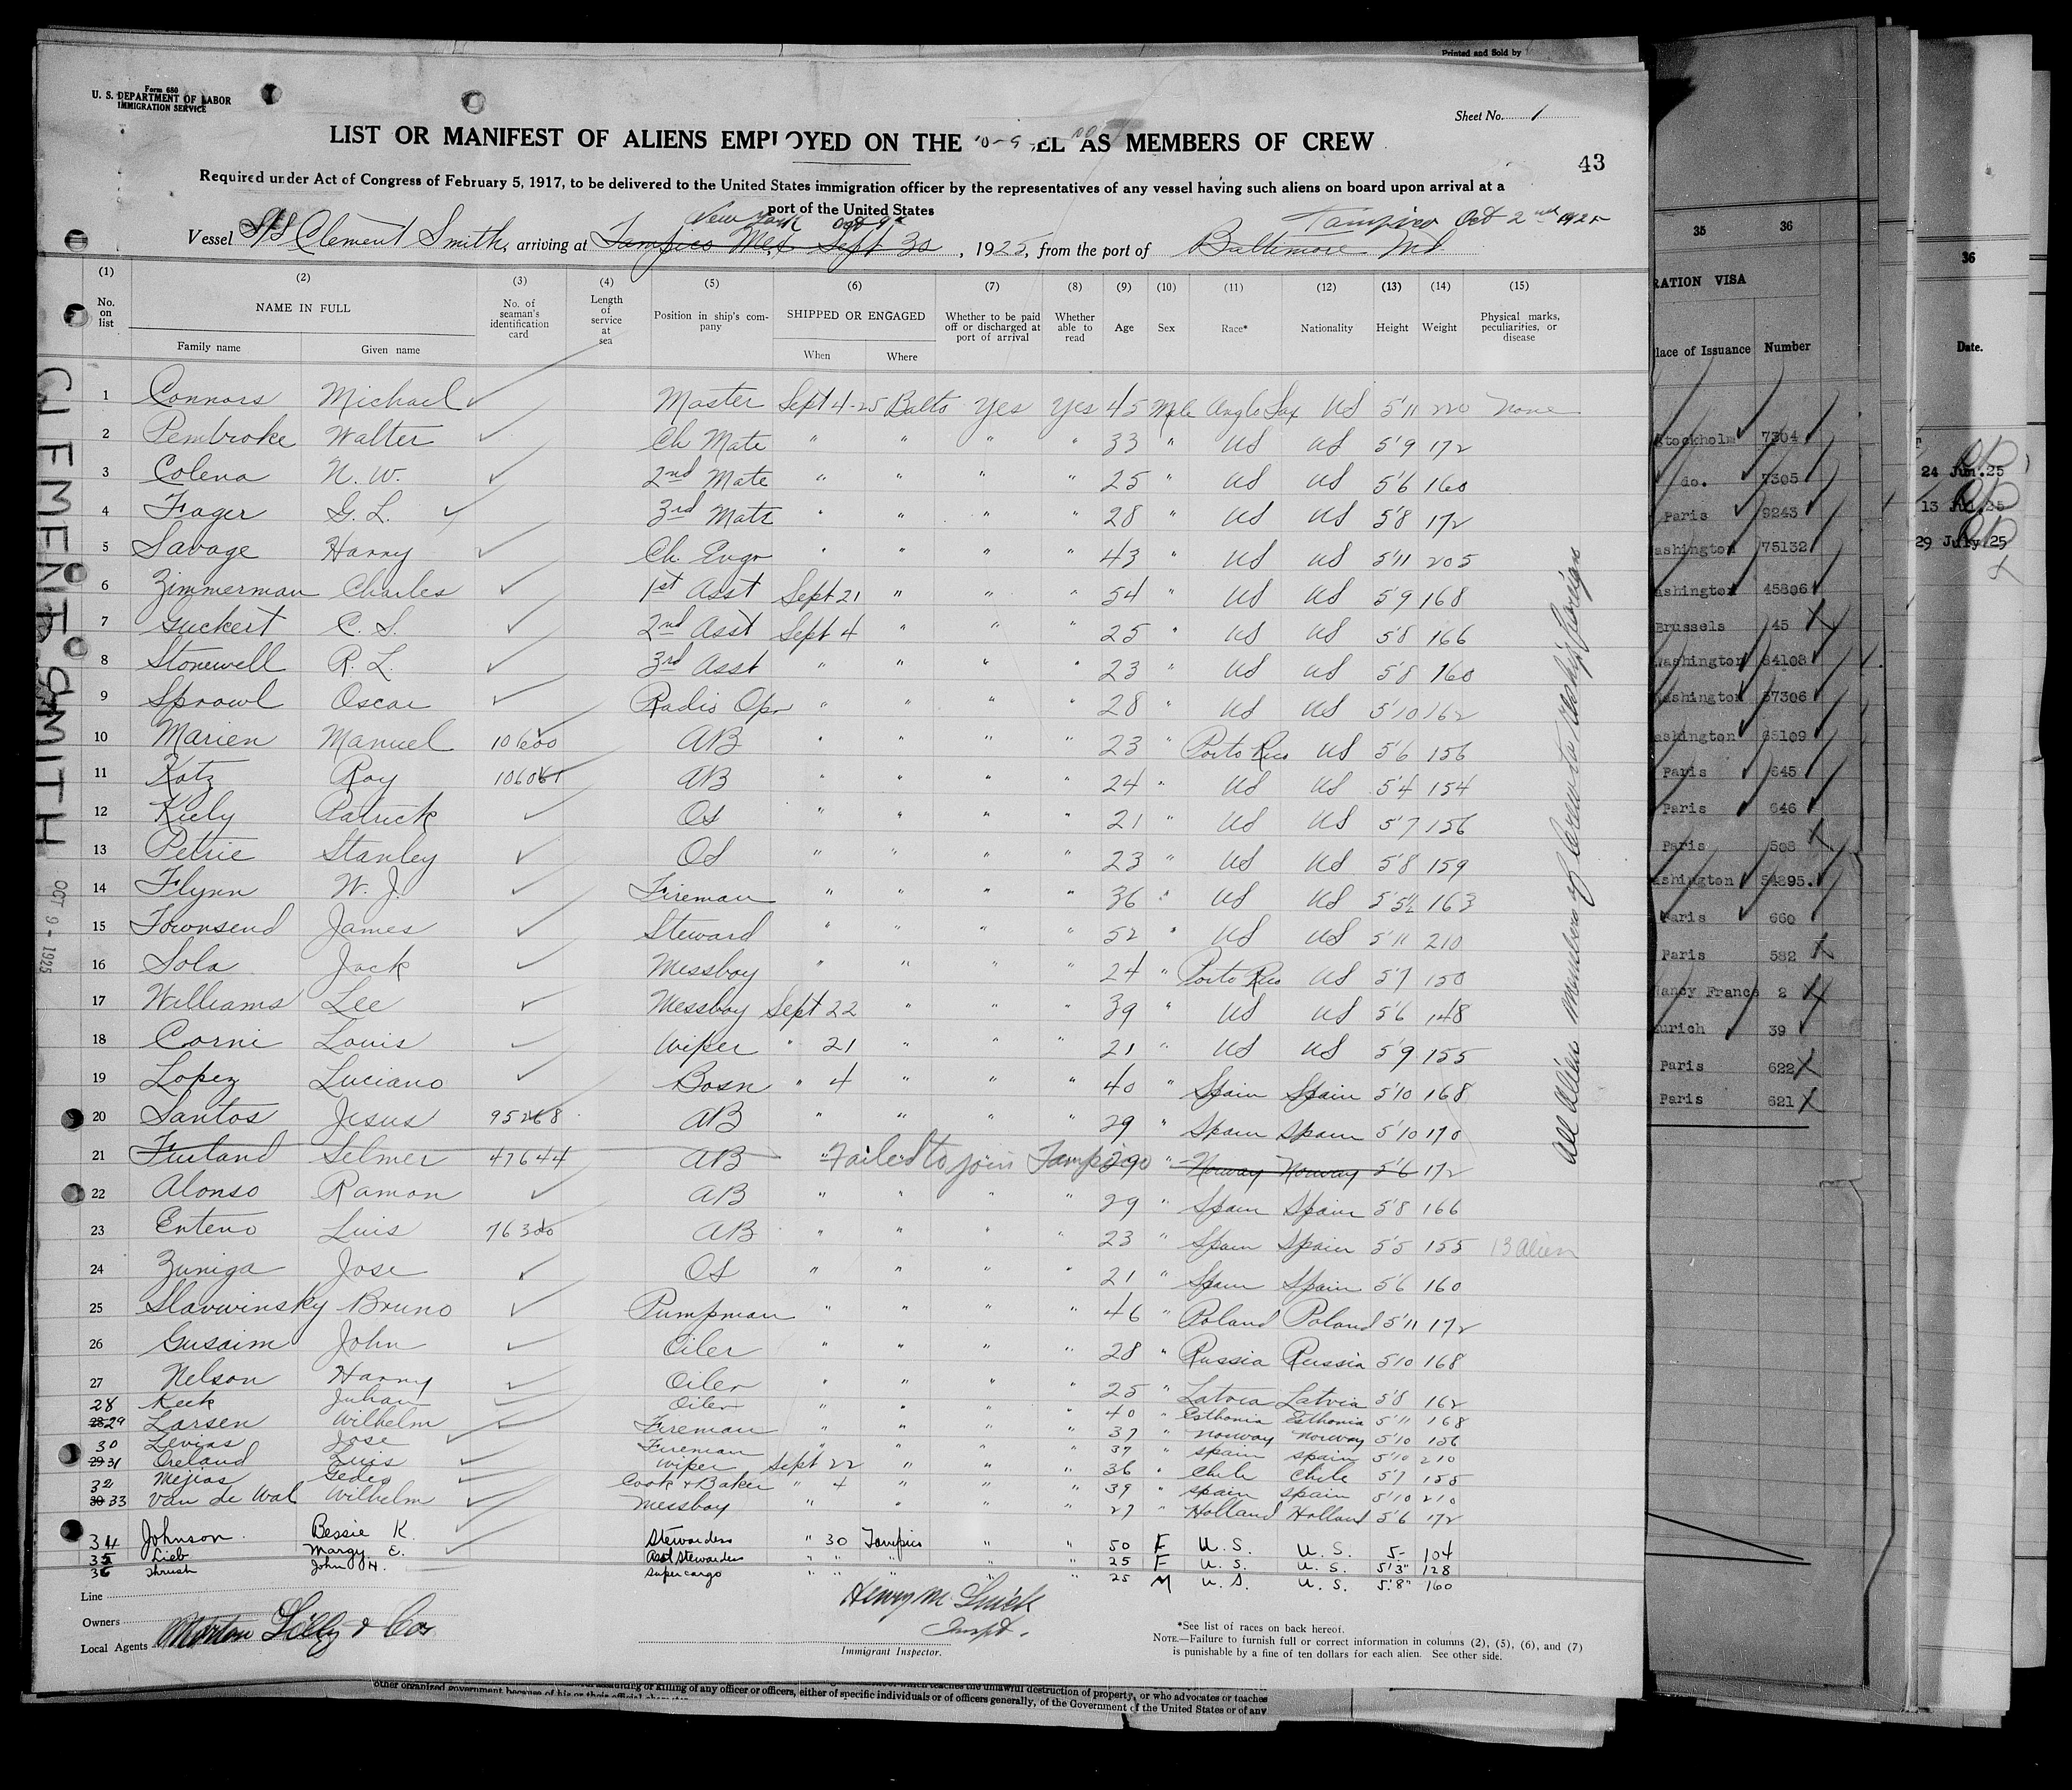 Printed and Sold by
Form 680
U. S. DEPARTMENT OF LABOR
IMMIGRATION SERVICE
Sheet No. 1
LIST OR MANIFEST OF ALIENS EMPLOYED ON THE 10-9 EL AS MEMBERS OF CREW
43
Required under Act of Congress of February 5, 1917, to be delivered to the United States immigration officer by the representatives of any vessel having such aliens on board upon arrival at a
port of the United States
New York Oct 9th Tampico Oct 2nd 1925
Vessel S/S Clement Smith, arriving at Tampico Mex Sept 30, 1925, from the port of Baltimore Md
(1) (2) (3) (4) (5) (6) (7) (8) (9) (10) (11) (12) (13) (14) (15)
No. on list NAME IN FULL Family name Given name No. of seaman's identification card Length of service at sea Position in ship's company SHIPPED OR ENGAGED When Where Whether to be paid off or discharged at port of arrival Whether able to read Age Sex Race* Nationality Height Weight Physical marks, peculiarities, or disease
1 Connors Michael Master Sept 4-25 Balto Yes Yes 45 Male Anglo Sax US 5'11 220 None
2 Pembroke Walter Ch Mate " " " " 33 " US US 5'9 172
3 Colena N. W. 2nd Mate " " " " 25 " US US 5'6 160
4 Frager G. L. 3rd Mate " " " " 28 " US US 5'8 172
5 Savage Harry Ch. Engr " " " " 43 " US US 5'11 205
6 Zimmerman Charles 1st Asst Sept 21 " " " 54 " US US 5'9 168
7 Guckert C. S. 2nd Asst Sept 4 " " " 25 " US US 5'8 166
8 Stonewell R. L. 3rd Asst " " " " 23 " US US 5'8 160
9 Sprowl Oscar Radio Opr " " " " 28 " US US 5'10 162
10 Marien Manuel 10600 AB " " " " 23 " Porto Rico US 5'6 156
11 Katz Roy AB " " " " 24 " US US 5'4 154
12 Kiely Patrick OS " " " " 21 " US US 5'7 156
13 Petrie Stanley OS " " " " 23 " US US 5'8 159
14 Flynn W. J. Fireman " " " " 36 " US US 5'5½ 163
15 Townsend James Steward " " " " 52 " US US 5'11 210
16 Sola Jack Messboy " " " " 24 " Porto Rico US 5'7 150
17 Williams Lee Messboy Sept 22 " " " 39 " US US 5'6 148
18 Corni Louis Wiper " 21 " " " 21 " US US 5'9 155
19 Lopez Luciano Bosn " 4 " " " 40 " Spain Spain 5'10 168
20 Santos Jesus 95268 AB " " " " 29 " Spain Spain 5'10 170
21 Furland Selmer 47644 AB " Failed to join Tampico 29 " Norway Norway 5'6 172
22 Alonso Ramon AB " " " " 29 " Spain Spain 5'8 166
23 Enteno Luis 76300 AB " " " " 23 " Spain Spain 5'5 155 13 alien
24 Zuniga Jose OS " " " " 21 " Spain Spain 5'6 160
25 Slavwinsky Bruno Pumpman " " " " 46 " Poland Poland 5'11 172
26 Gusaim John Oiler " " " " 28 " Russia Russia 5'10 168
27 Nelson Harry Oiler " " " " 25 " Latvia Latvia 5'8 162
28 Keek Julian Oiler " " " " 40 " Esthonia Esthonia 5'11 168
28 29 Larsen Wilhelm Fireman " " " " 37 " Norway Norway 5'10 156
30 Levias Jose Fireman " " " " 37 " Spain Spain 5'10 210
29 31 Oreland Luis Wiper Sept 22 " " " 36 " Chile Chile 5'7 155
32 Mejias Gedeo Cook & Baker " 4 " " " 39 " Spain Spain 5'10 210
30 33 Van de Wal Wilhelm Messboy " " " " 27 " Holland Holland 5'6 172
34 Johnson Bessie K. Stewardess " 30 Tampico " " 50 F U.S. U.S. 5- 104
35 Lieb Margy E. Asst Stewardess " " " " " 25 F U.S. U.S. 5'3" 128
36 Thrush John H. Supercargo " " " " " 25 M U.S. U.S. 5'8" 160
All alien members of crew
CLEMENT SMITH
OCT 9 - 1925
Line
Owners
Local Agents Morton Lilly & Co.
Henry M.
Inspt.
Immigrant Inspector.
*See list of races on back hereof.
NOTE.—Failure to furnish full or correct information in columns (2), (5), (6), and (7)
is punishable by a fine of ten dollars for each alien. See other side.
other organized government because of his or their official character
assaulting or killing of any officer or officers, either of specific individuals or of officers generally, of the Government of the United States or of any
which teaches the unlawful destruction of property, or who advocates or teaches
35 36
RATION VISA
lace of Issuance Number
Stockholm 7304
do. 7305
Paris 9243
ashington 75132
ashington 45806
Brussels 45
Washington 64108
Washington 57306
ashington 65109
Paris 645
Paris 646
Paris 508
ashington 54895
Paris 660
Paris 582
Nancy France 2
urich 39
Paris 622
Paris 621
36
Date.
24 Jun.25
13 Jul.25
29 July.25